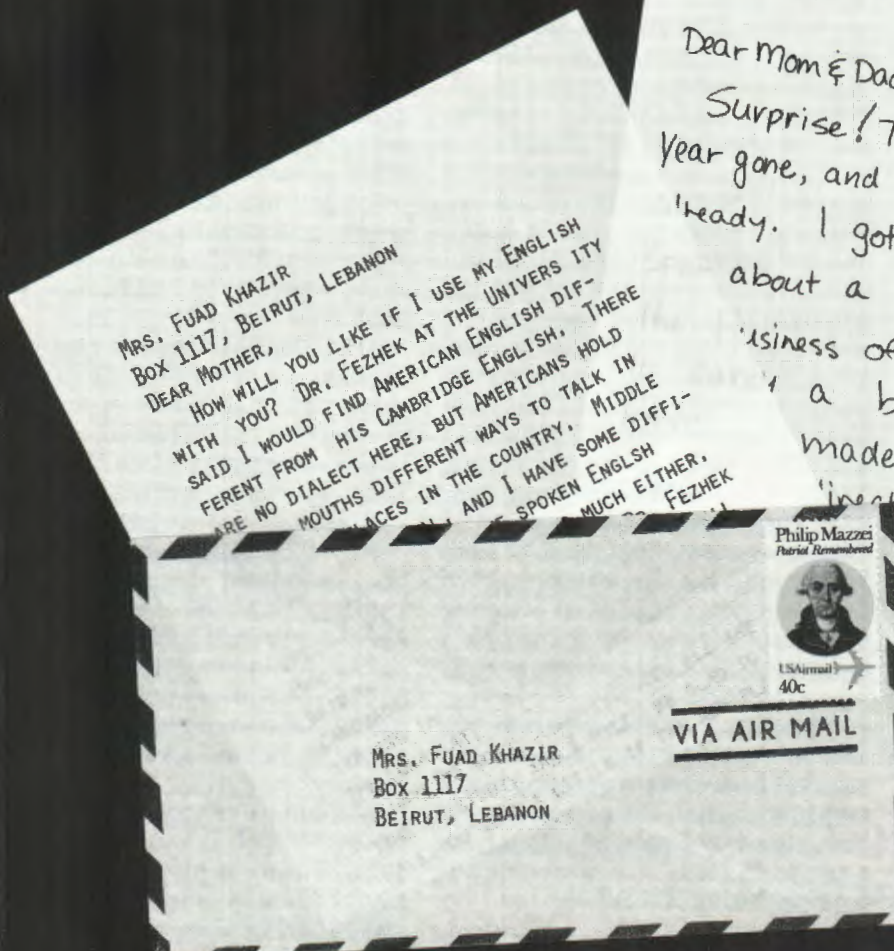 MRS. FUAD KHAZIR
BOX 1117, BEIRUT, LEBANON
DEAR MOTHER,
HOW WILL YOU LIKE IF I USE MY ENGLISH
WITH YOU? DR. FEZHEK AT THE UNIVERS ITY
SAID I WOULD FIND AMERICAN ENGLISH DIF-
FERENT FROM HIS CAMBRIDGE ENGLISH. THERE
ARE NO DIALECT HERE, BUT AMERICANS HOLD
MOUTHS DIFFERENT WAYS TO TALK IN
LACES IN THE COUNTRY. MIDDLE
AND I HAVE SOME DIFFI-
SPOKEN ENGLSH
MUCH EITHER.
FEZHEK
Dear Mom & Dad
Surprise!
Year gone, and
'ready. I got
about a
usiness of
a b
made
Philip Mazzei
Patriot Remembered
USAirmail
40c
VIA AIR MAIL
MRS. FUAD KHAZIR
BOX 1117
BEIRUT, LEBANON